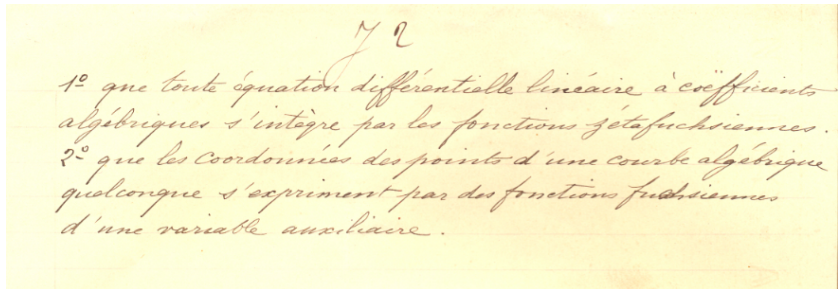 J 2
1º que toute équation différentielle linéaire à coëfficients
algébriques s'intègre par les fonctions zétafuchsiennes.
2º que les coordonnées des points d'une courbe algébrique
quelconque s'expriment par des fonctions fuchsiennes
d'une variable auxiliaire.